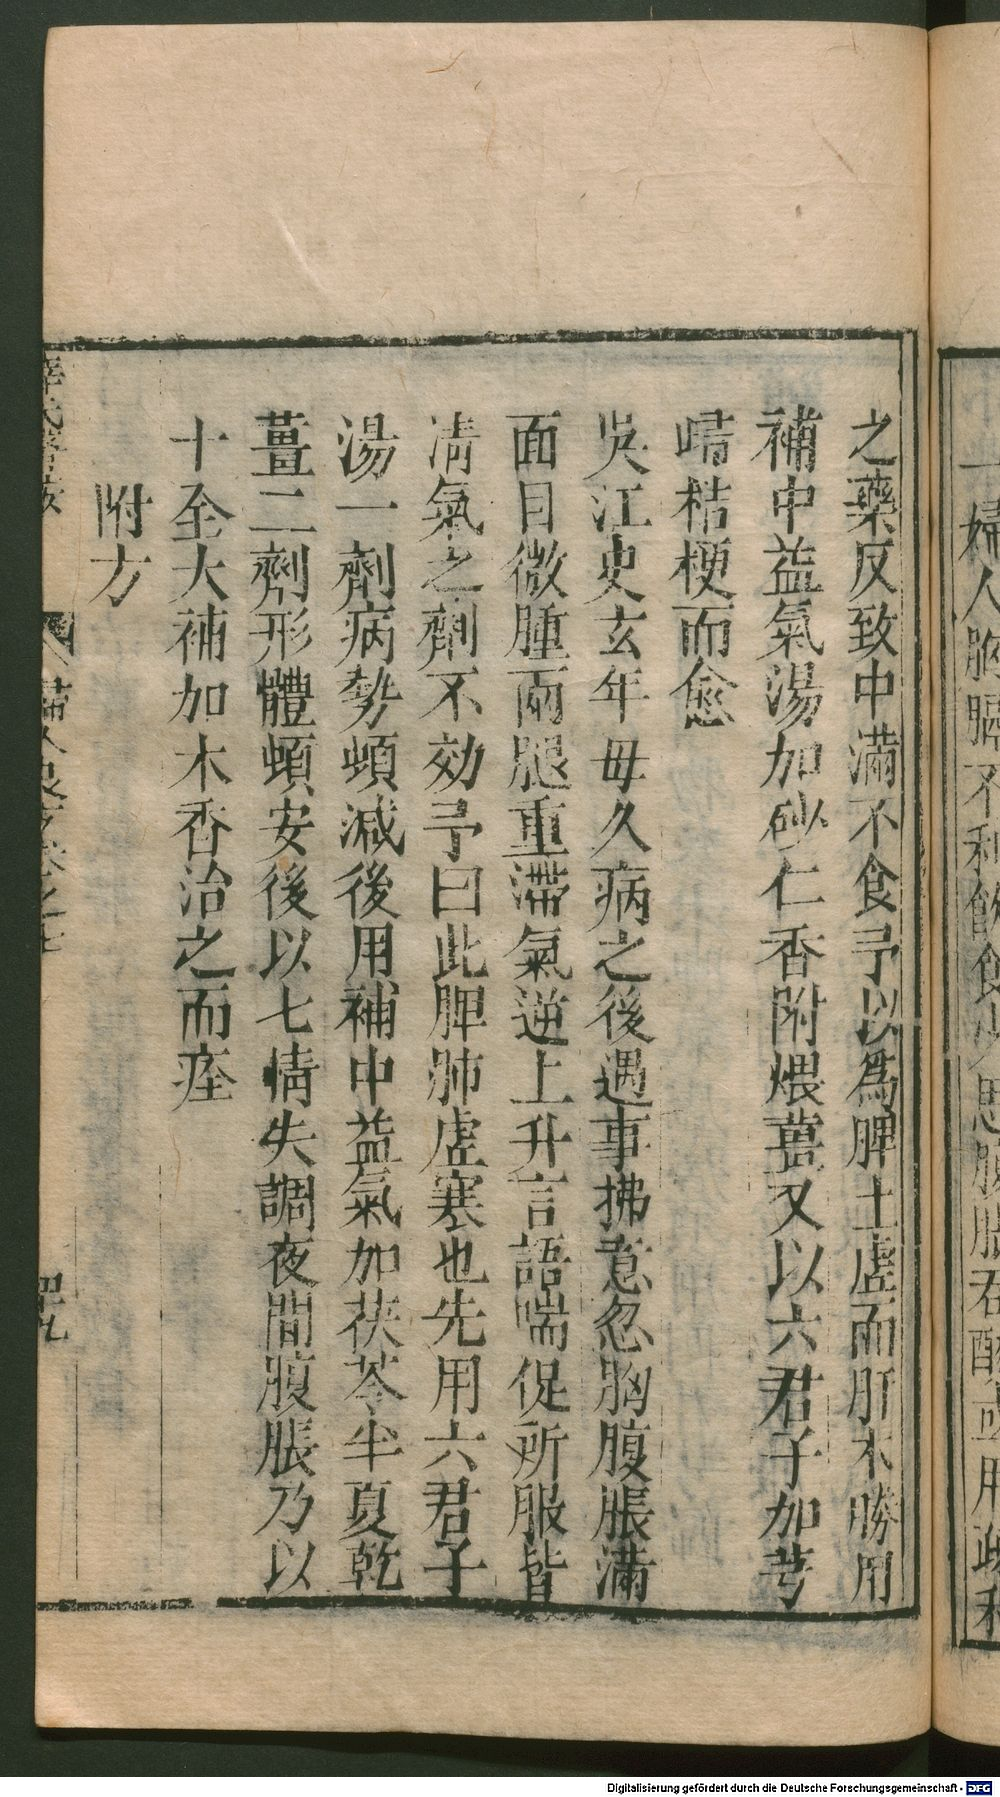 一婦人胸膈不利飲食少思腹脹吞酸或用疏利
之藥反致中滿不食予以爲脾土虛而肝木勝用
補中益氣湯加砂仁香附煨薑又以六君子加芎
歸桔梗而愈
吳江史玄年母久病之後遇事拂意忽胸腹脹滿
面目微腫兩腿重滯氣逆上升言語喘促所服皆
淸氣之劑不効予曰此脾肺虛寒也先用六君子
湯一劑病勢頓減後用補中益氣加茯苓半夏乾
薑二劑形體頓安後以七情失調夜間腹脹乃以
十全大補加木香治之而痊
附方
薛氏醫按
婦人良方卷之七
四九
Digitalisierung gefördert durch die Deutsche Forschungsgemeinschaft - DFG